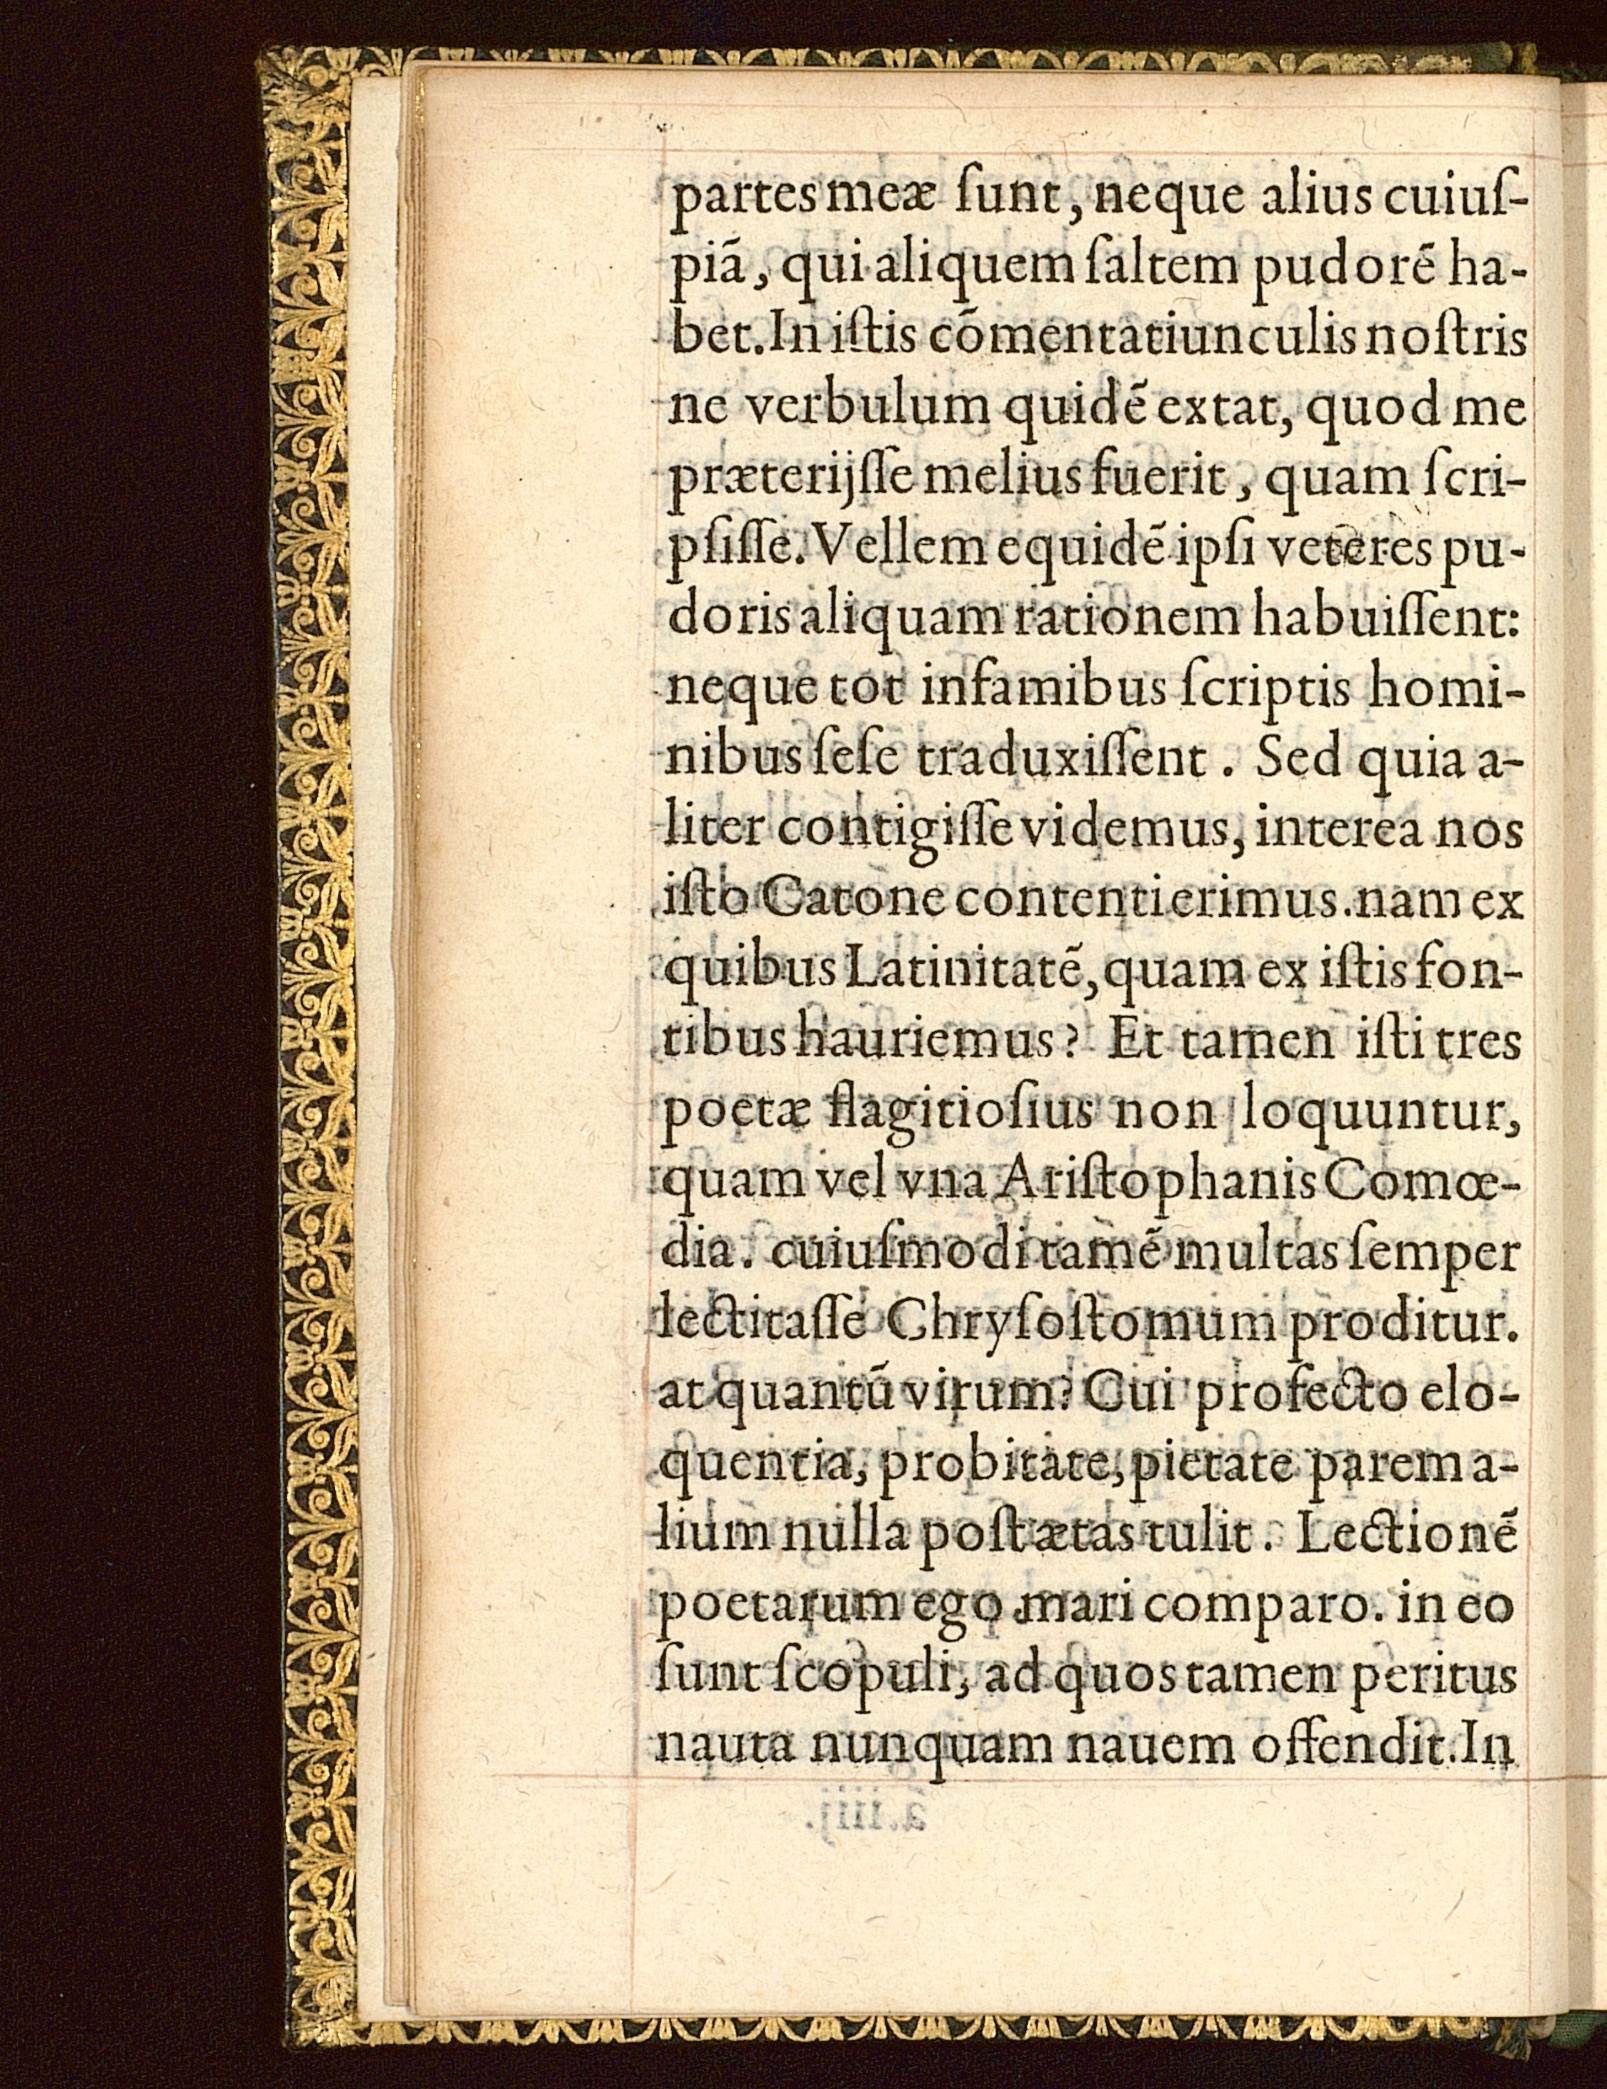 partes meæ ſunt, neque alius cuiuſ-
piã, qui aliquem ſaltem pudorẽ ha-
bet. In iſtis cõmentatiunculis noſtris
ne verbulum quidẽ extat, quod me
præterijſſe melius fuerit, quam ſcri-
pſiſſe. Vellem equidẽ ipſi veteres pu-
doris aliquam rationem habuiſſent:
neque tot infamibus ſcriptis homi-
nibus ſeſe traduxiſſent. Sed quia a-
liter contigiſſe videmus, interea nos
iſto Catone contenti erimus. nam ex
quibus Latinitatẽ, quam ex iſtis fon-
tibus hauriemus? Et tamen iſti tres
poetæ flagitioſius non loquuntur,
quam vel vna Ariſtophanis Comœ-
dia. cuiuſmodi tamẽ multas ſemper
lectitaſſe Chryſoſtomum proditur.
at quantũ virum? Cui profecto elo-
quentia, probitate, pietate parem a-
lium nulla poſt ætas tulit. Lectionẽ
poetarum ego mari comparo. in eo
ſunt ſcopuli, ad quos tamen peritus
nauta nunquam nauem offendit. In